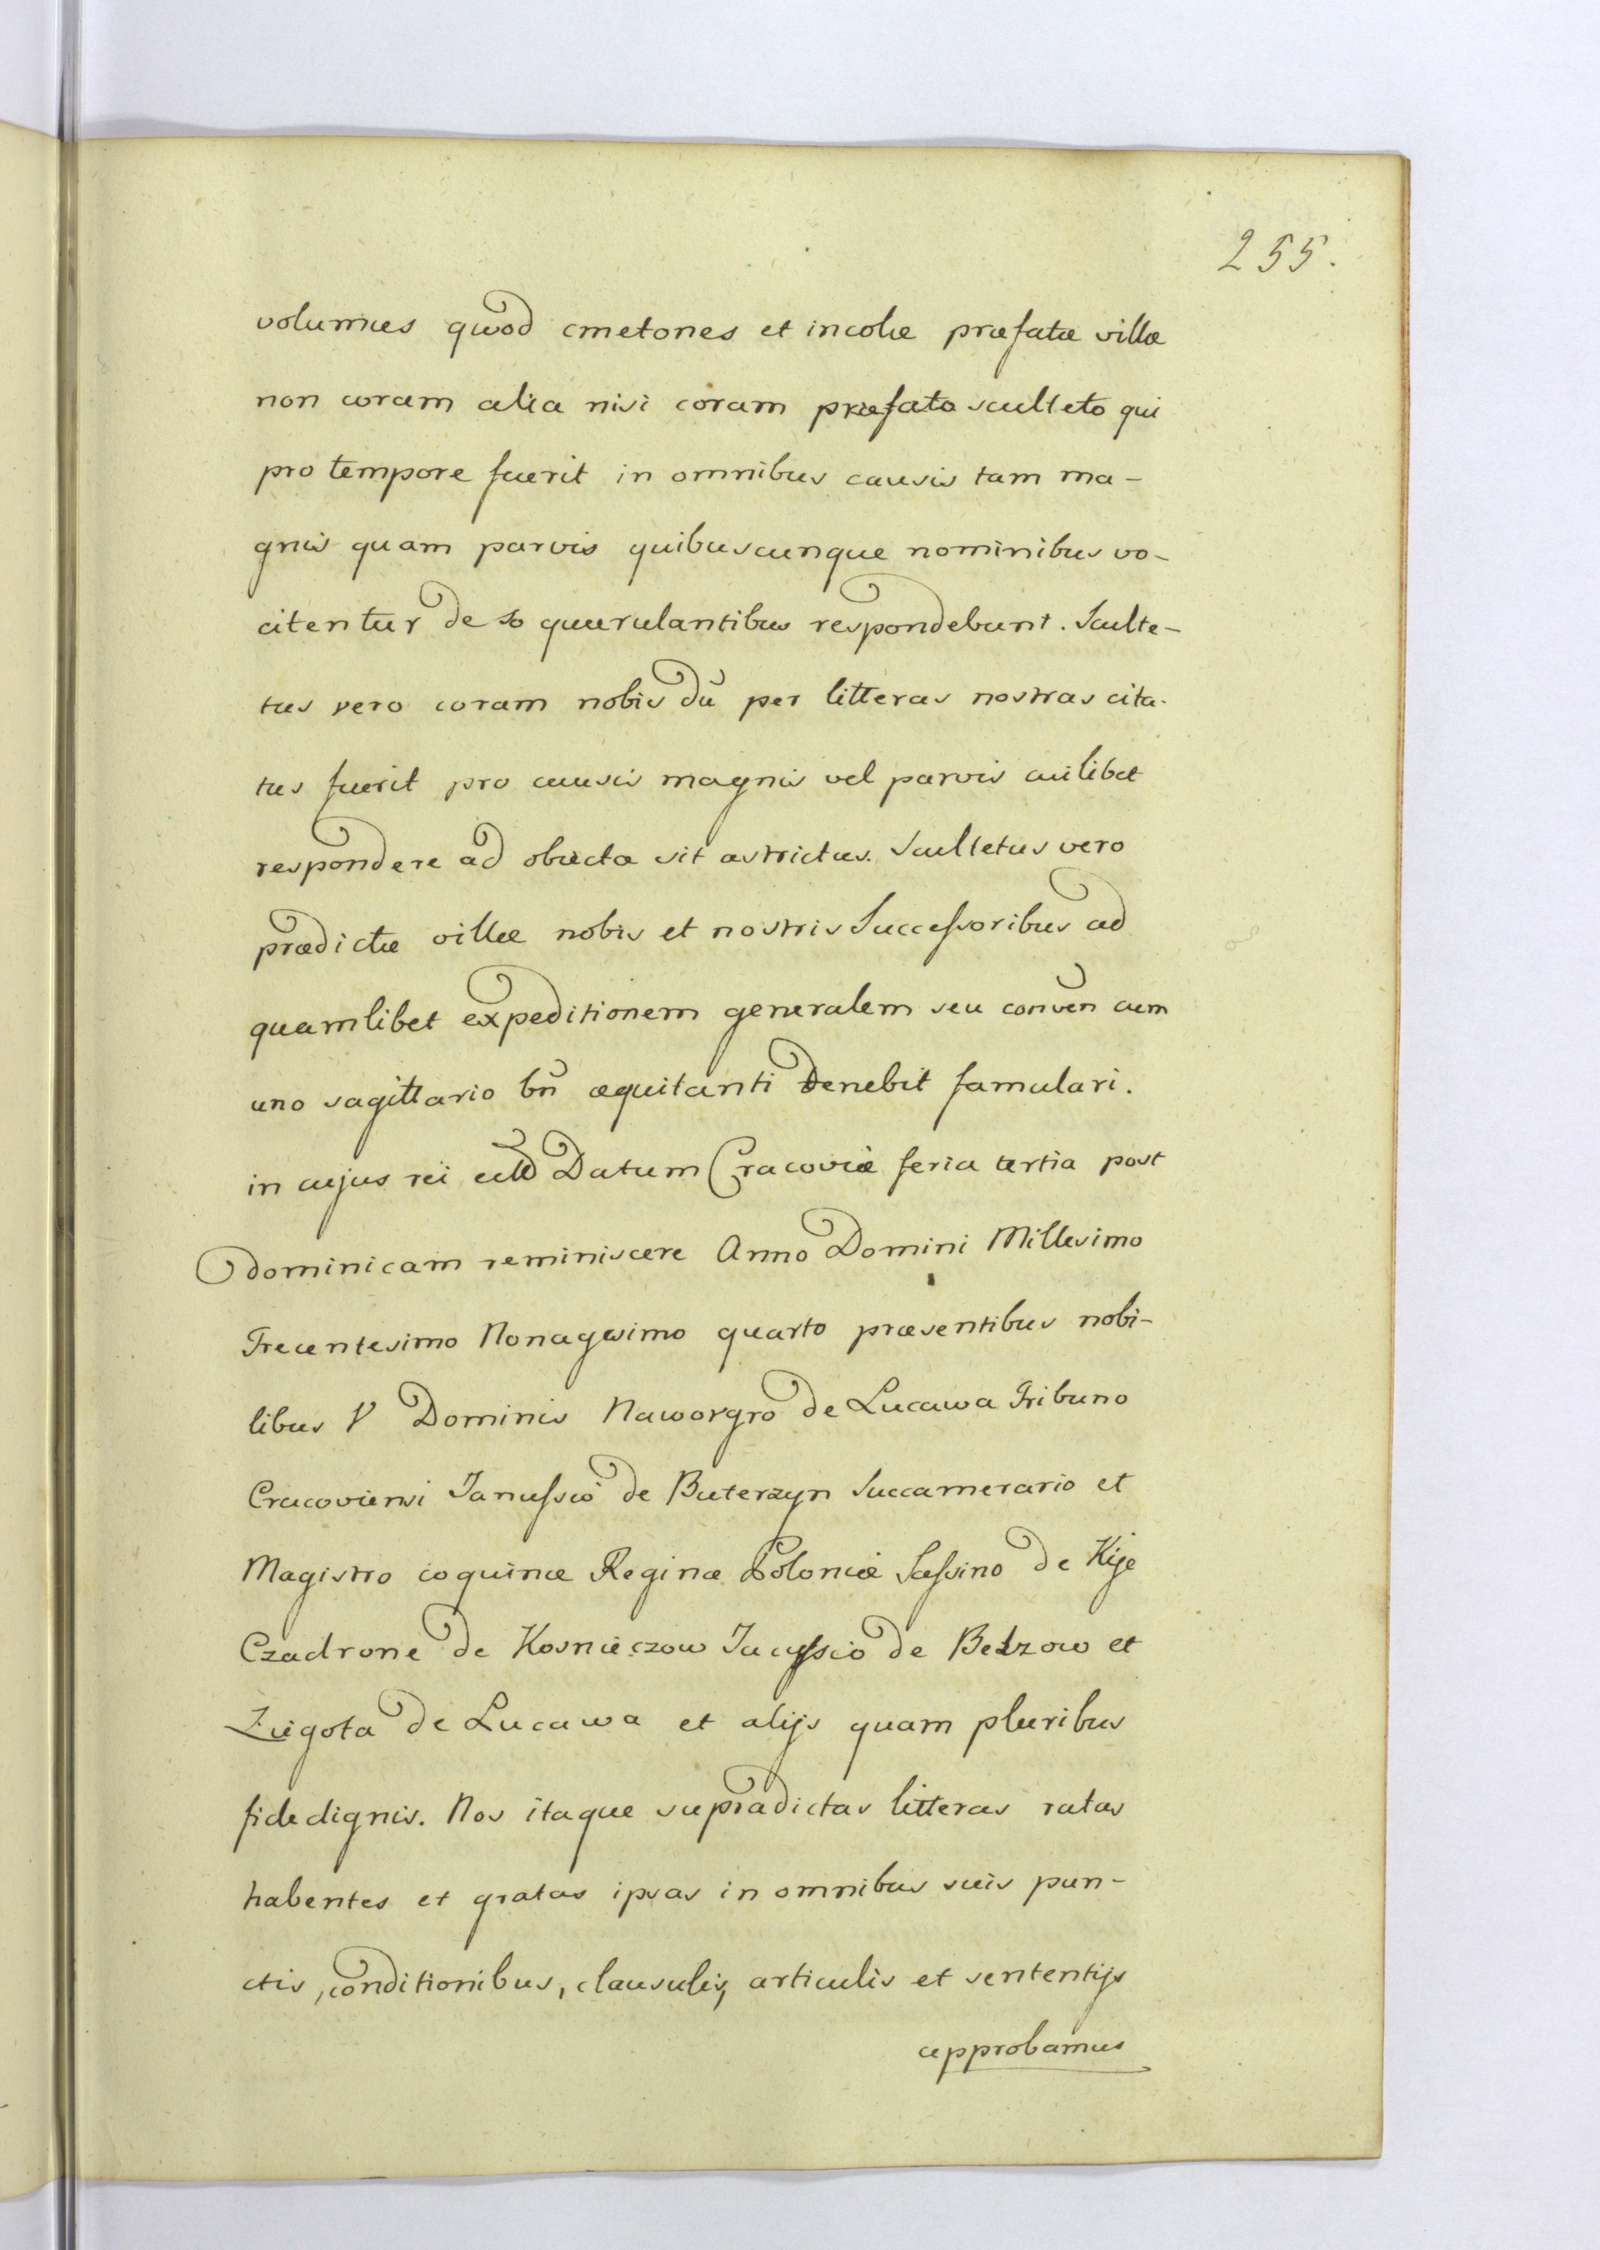 255.
volumus quod cmetones et incolæ præfatæ villæ
non coram alia nisi coram præfato sculteto qui
pro tempore fuerit in omnibus causis tam ma-
gnis quam parvis quibuscunque nominibus vo-
citentur de se querulantibus respondebunt. Sculte-
tus vero coram nobis dũ per litteras nostras cita-
tus fuerit pro causis magnis vel parvis cuilibet
respondere ad obiecta sit astrictus. Scultetus vero
prædictæ villæ nobis et nostris Successoribus ad
quamlibet expeditionem generalem seu conven̄ cum
uno sagittario bn̄ æquitanti denebit famulari.
in cujus rei Datum Cracoviæ feria tertia post
dominicam reminiscere Anno Domini Millesimo
Trecentesimo Nonagesimo quarto præsentibus nobi-
libus V Dominis Naworgro de Lucawa Tribuno
Cracoviensi Janussio de Buterzyn Succamerario et
Magistro coquinæ Reginæ Poloniæ Sassino de Kije
Czadrone de Kosnieczow Jacussio de Belzow et
Ziegota de Lucawa et alijs quam pluribus
fide dignis. Nos itaque supradictas litteras ratas
habentes et gratas ipsas in omnibus suis pun-
ctis, conditionibus, clausulis, articulis et sententijs
approbamus